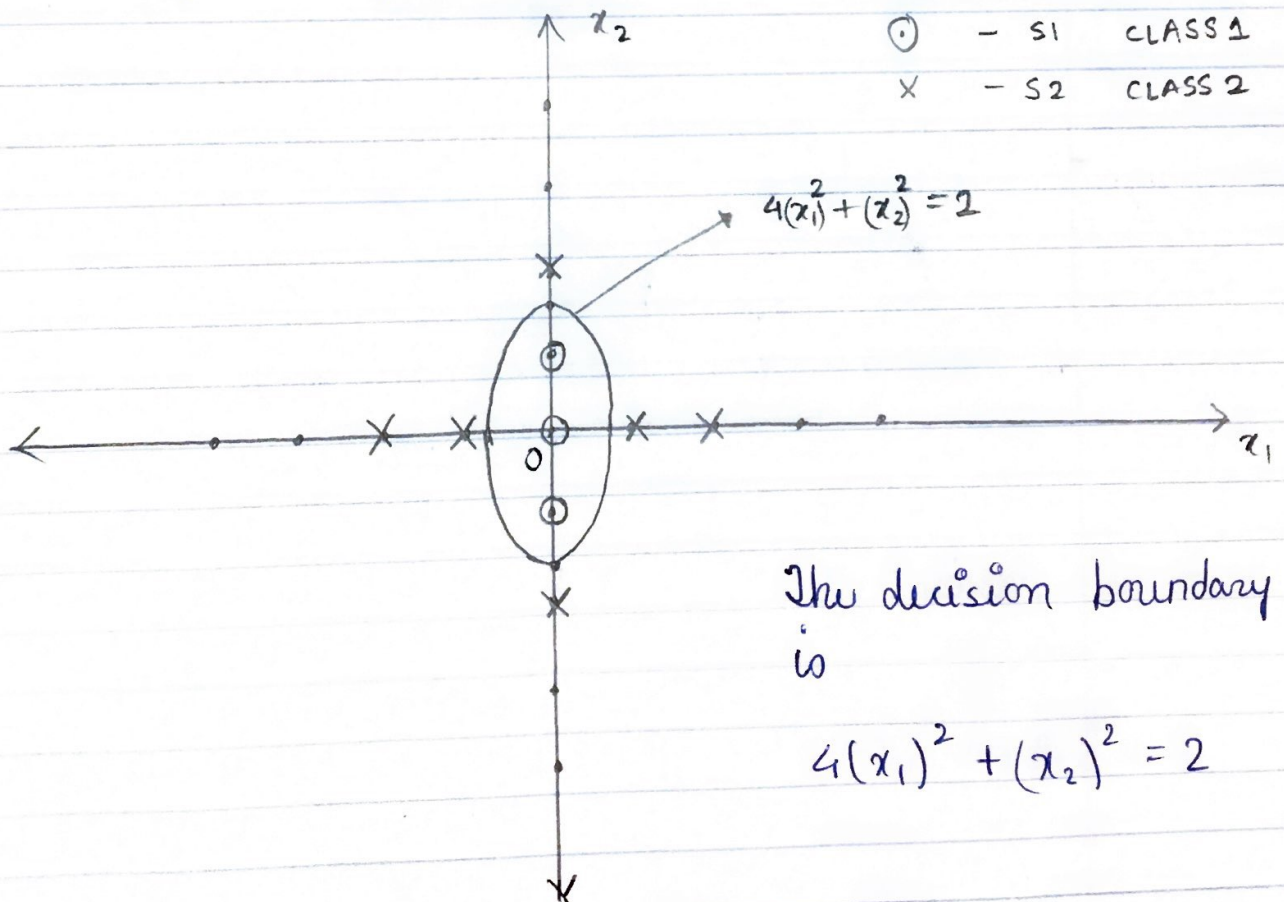 x₂
⊙ - S1 CLASS 1
× - S2 CLASS 2
4(x₁)² + (x₂)² = 2
0
x₁
The decision boundary
is
4(x₁)² + (x₂)² = 2